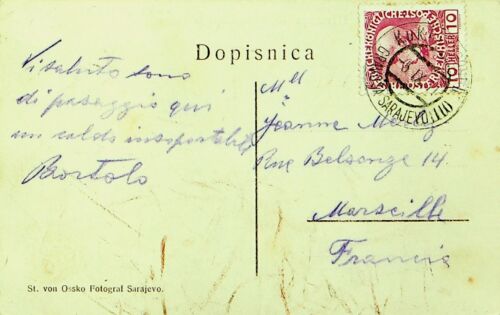 Dopisnica
Vi saluto sono
di passaggio qui
un caldo insoportabile
Bortolo
Mll
Jeanne
Rue Belsonze 14
Marseille
Francia
10 HELLER 10
SARAJEVO
St. von Ossko Fotograf Sarajevo.